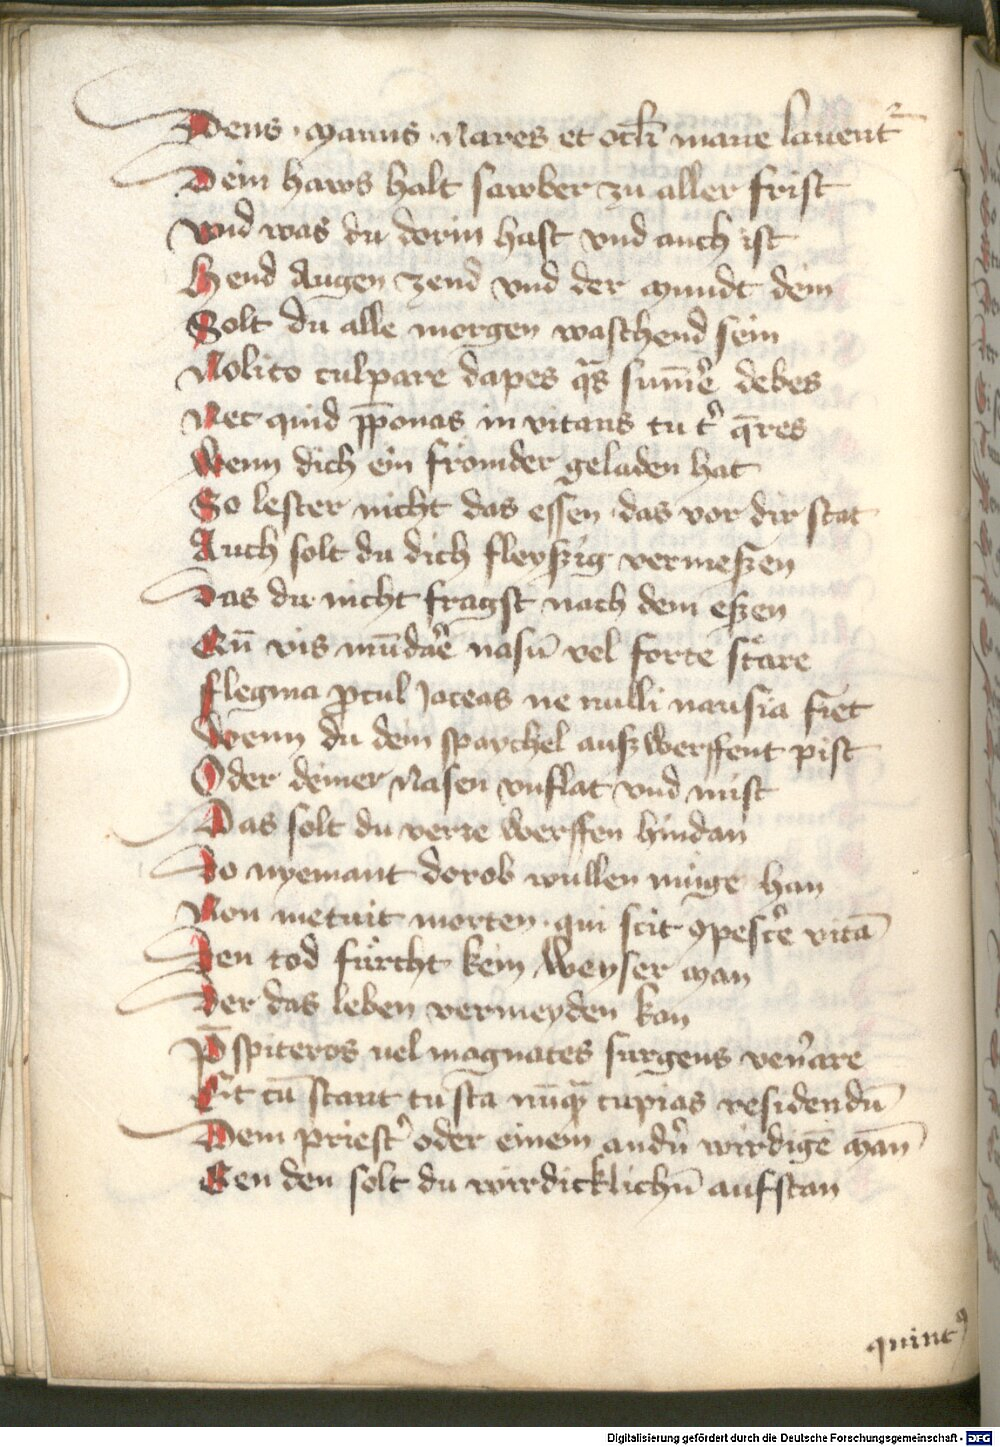 Dens · manus · Nares et ocli mane lauent᷑
Dein haws halt sawber zu aller frist
vnd was du dorin hast vnd auch ist
Hend Augen zend vnd der mundt dein
Solt du alle morgen waschend sein
Nolito culpare dapes q̄s sum̄e debes
Nec quid p̄ponas in vitans tu t̉ q̄res
Wenn dich ein frömder geladen hat
So lester nicht das essen · das vor dir stat
Auch solt du dich fleyszig vermeszen
Das du nicht fragst nach dem eszen
Cū vis mūdar̄e nasū vel forte st̄are
flegma ꝓcul Jaceas ne nulli nausia fiet
Wenn du dein spaychel ausz werffent pist
Oder deiner Nasen vnflat vnd mist
Das solt du verre werffen hindan
So nyemant dorob wullen müge han
Non metuit mortem · qui scit ꝯpesc̉e vitā
Den tod fürcht kein weyser man
Der das leben vermeyden kan
P̄spiteros uel magnates surgens ven̉are
Et cū stant tu sta nūq̄ cupias residendū
Dem priest̉ oder einem and̉n wirdigē man̄
Gen den solt du wirdicklichn̄ aufstan
quintꝰ
Digitalisierung gefördert durch die Deutsche Forschungsgemeinschaft - DFG